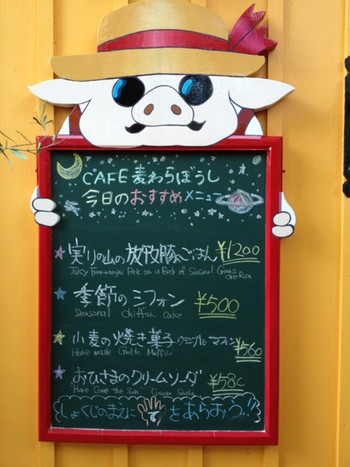 CAFE 麦わらぼうし
今日のおすすめメニュー
実りの山の放牧豚ごはん ¥1200
季節のシフォン ¥500
Seasonal Chiffon Cake
小麦の焼き菓子 クランブルマフィン ¥560
おひさまのクリームソーダ ¥580
Here Comes the Sun Cream Soda
しょくじのまえに をあらおう!!